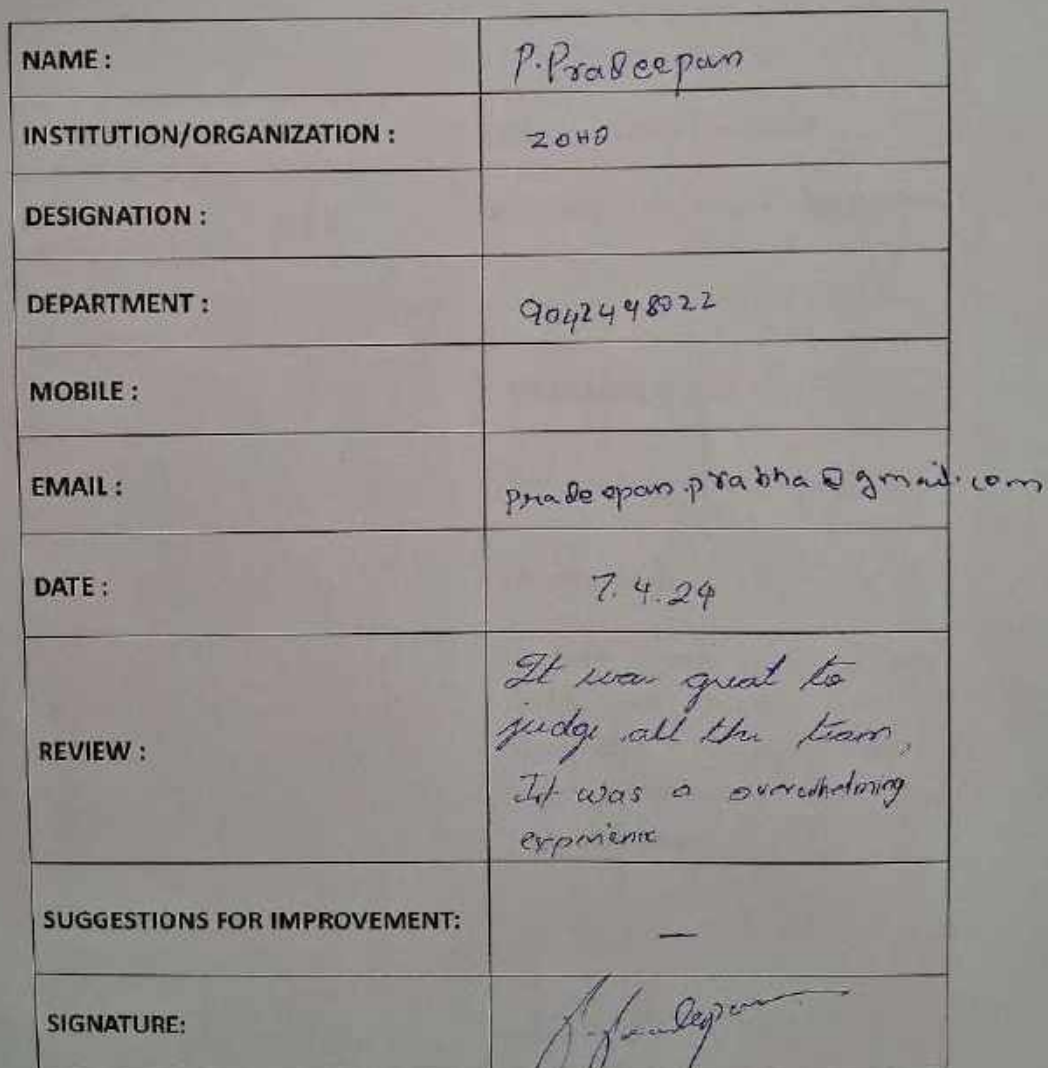 NAME :
P. Pradeepan
INSTITUTION/ORGANIZATION :
ZOHO
DESIGNATION :
DEPARTMENT :
9042498022
MOBILE :
EMAIL :
pradeepan.prabha@gmail.com
DATE :
7.4.24
REVIEW :
It was great to
judge all the team,
It was a overwhelming
experience
SUGGESTIONS FOR IMPROVEMENT:
—
SIGNATURE:
P. Pradeepan